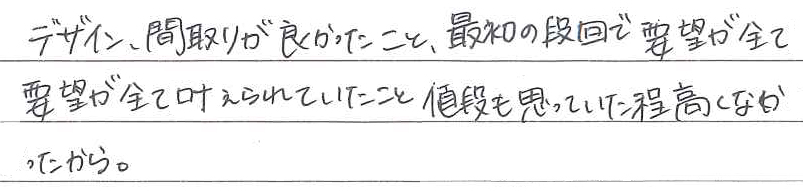 デザイン、間取りが良かったこと、最初の段回で要望が全て
要望が全て叶えられていたこと値段も思っていた程高くなか
ったから。